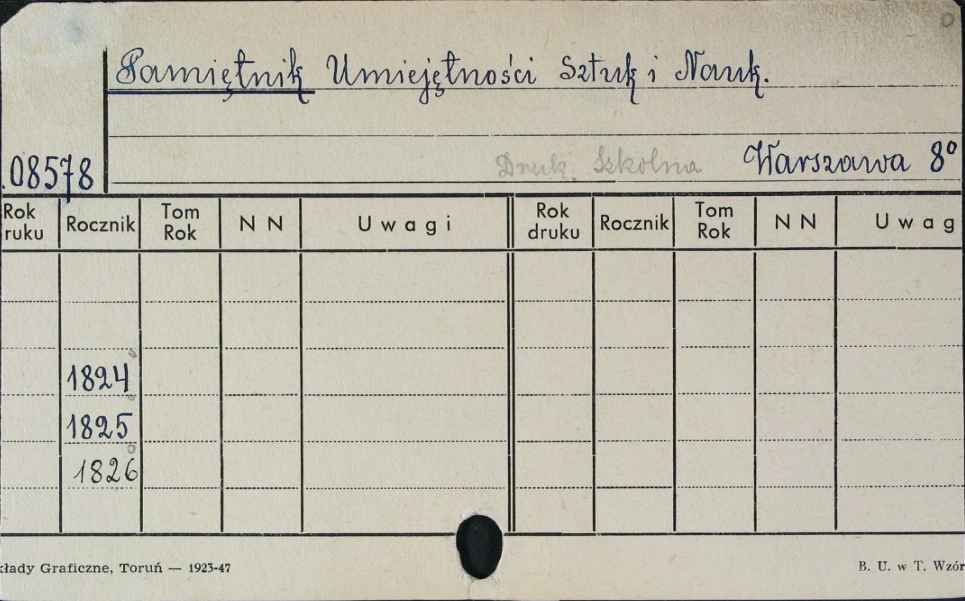 Pamiętnik Umiejętności Sztuk i Nauk.
.08578 Druk. Szkolna Warszawa 8º
Rok ruku Rocznik Tom Rok N N Uwagi Rok druku Rocznik Tom Rok N N Uwag
1824
1825
1826
kłady Graficzne, Toruń — 1923-47 B. U. w T. Wzór